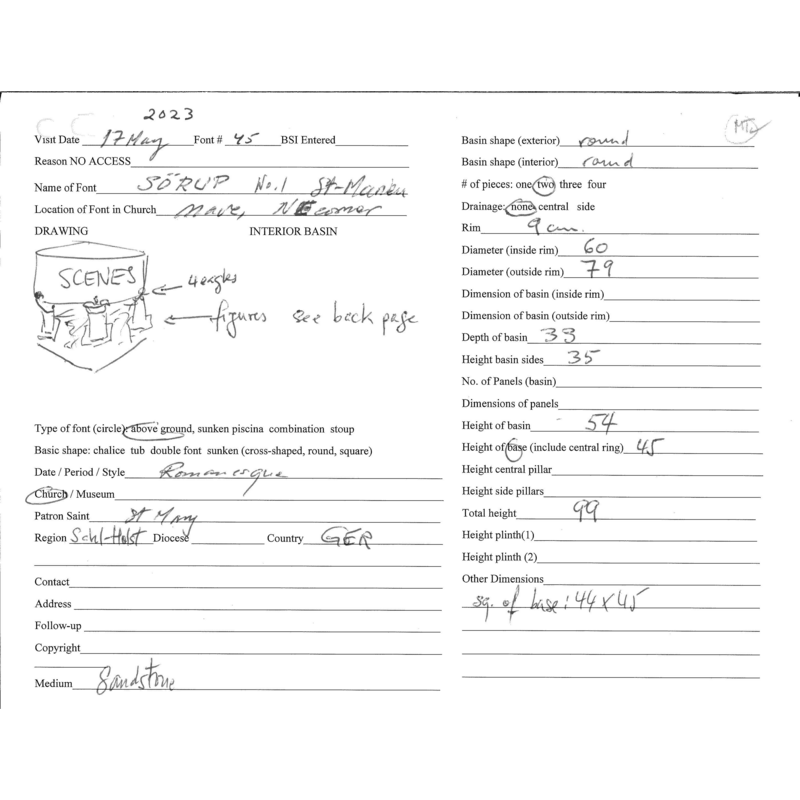 2023
Visit Date 17 May Font # 45 BSI Entered
Reason NO ACCESS
Name of Font SÖRUP No.1 St-Marien
Location of Font in Church nave, NE corner
DRAWING INTERIOR BASIN
SCENES
4 eagles
figures see back page
Type of font (circle): above ground, sunken piscina combination stoup
Basic shape: chalice tub double font sunken (cross-shaped, round, square)
Date / Period / Style Romanesque
Church / Museum
Patron Saint St Mary
Region Schl-Holst Diocese Country GER
Contact
Address
Follow-up
Copyright
Medium Sandstone
Basin shape (exterior) round
Basin shape (interior) round
# of pieces: one two three four
Drainage: none central side
Rim 9 cm.
Diameter (inside rim) 60
Diameter (outside rim) 79
Dimension of basin (inside rim)
Dimension of basin (outside rim)
Depth of basin 33
Height basin sides 35
No. of Panels (basin)
Dimensions of panels
Height of basin 54
Height of base (include central ring) 45
Height central pillar
Height side pillars
Total height 99
Height plinth(1)
Height plinth (2)
Other Dimensions
sq. of base: 44 x 45